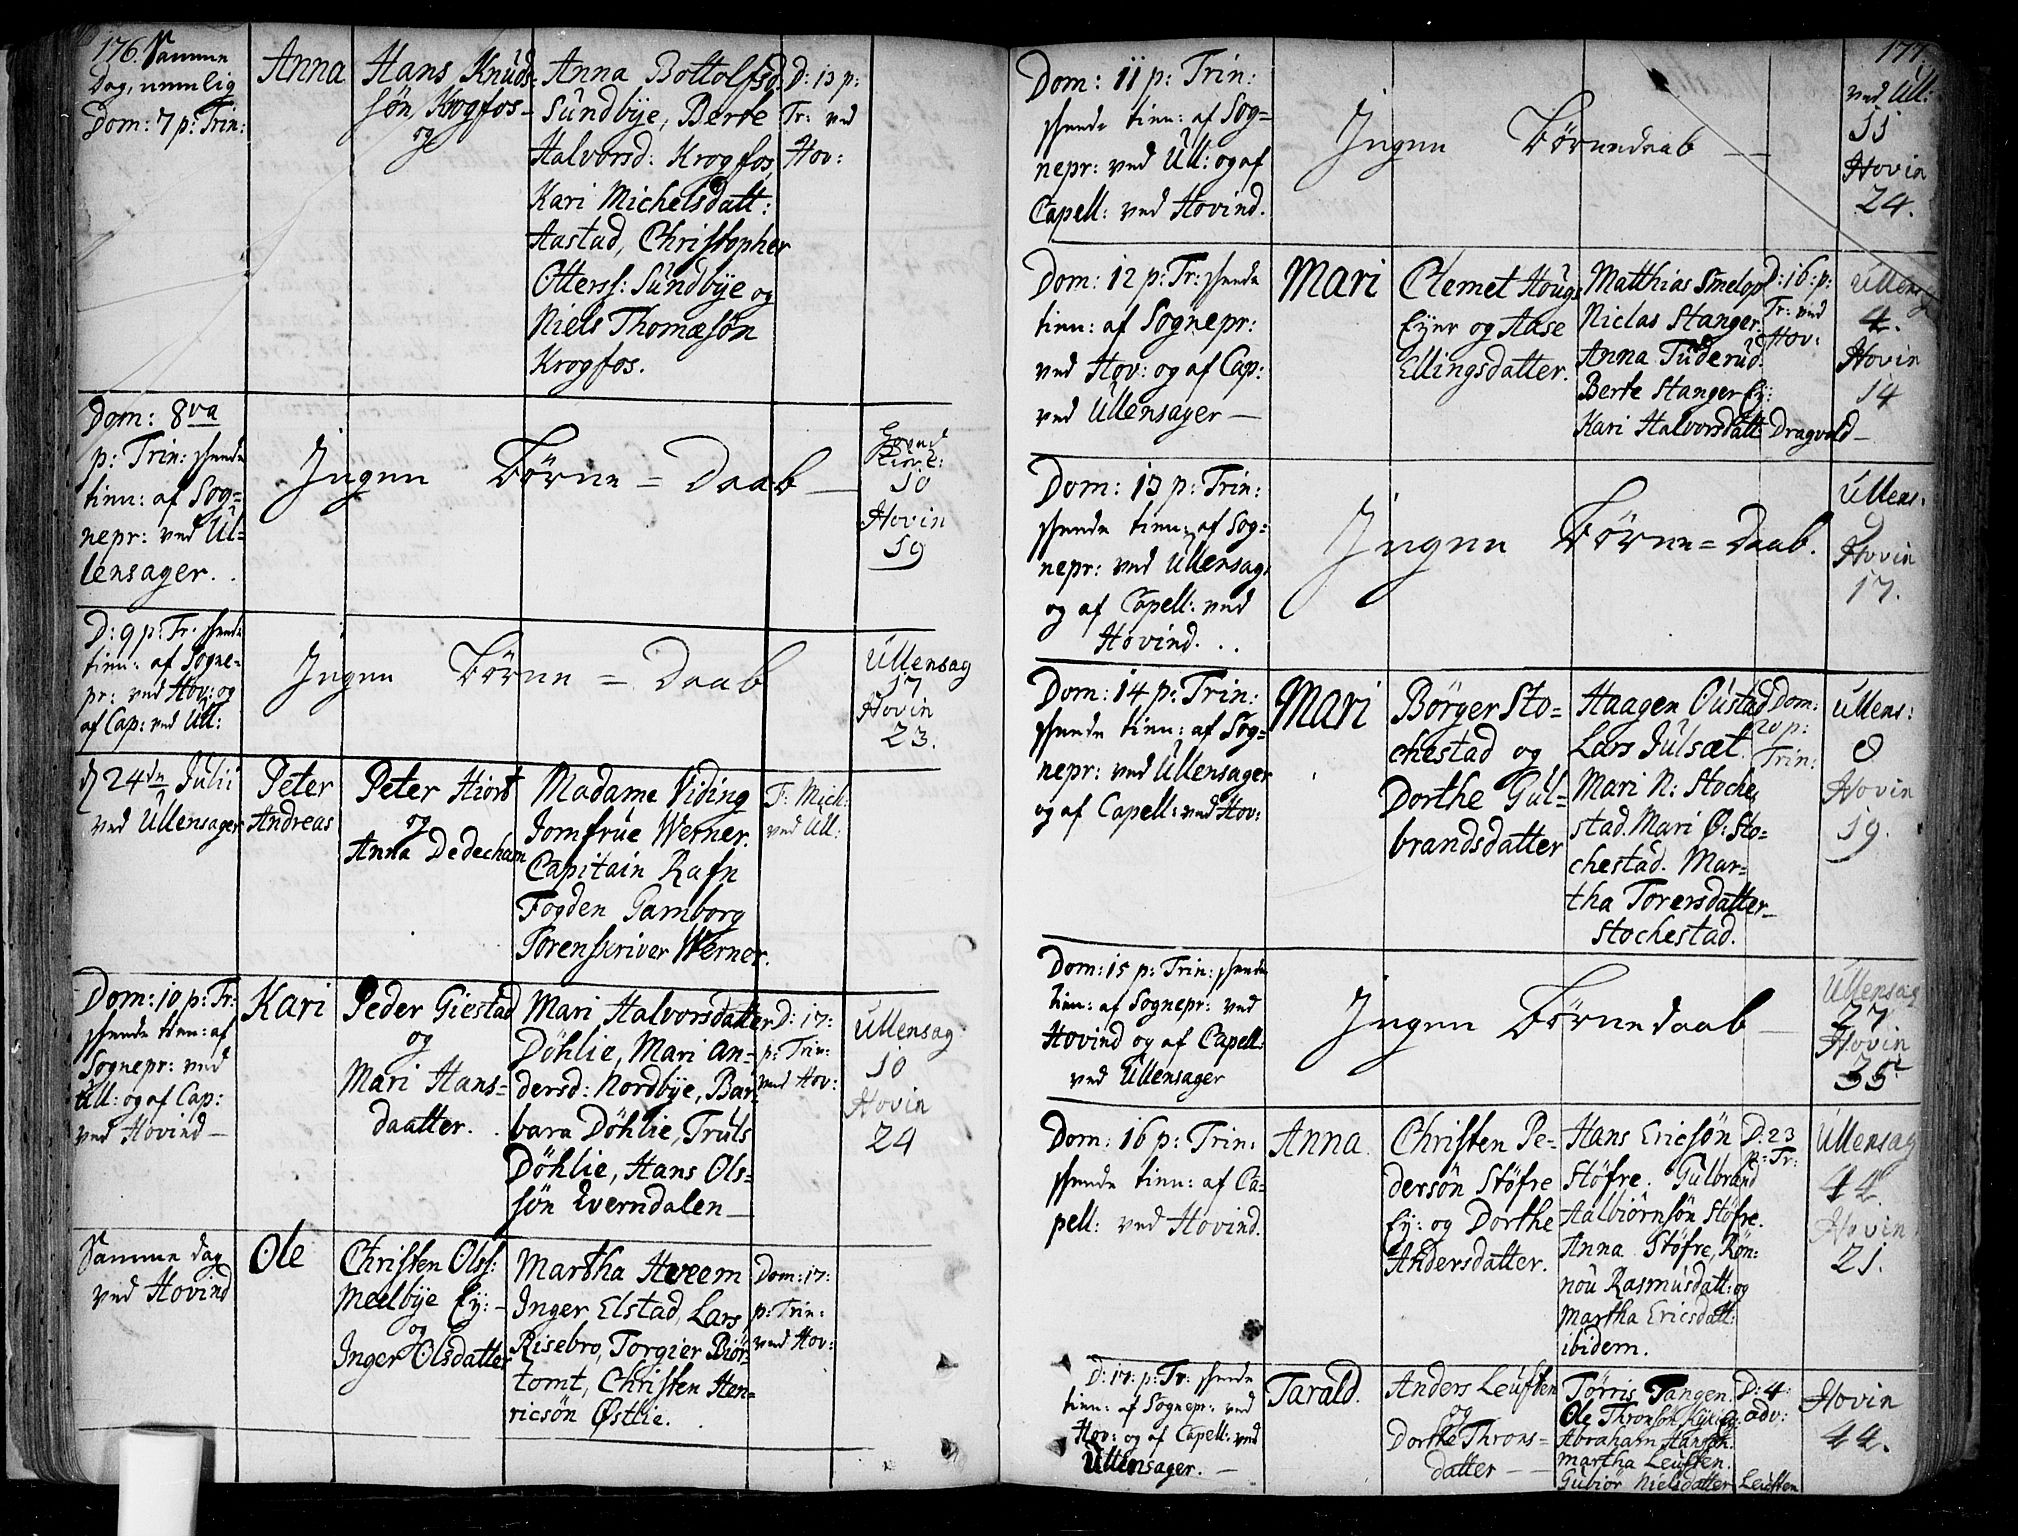 176. Samme
Dag, nemlig
Dom: 7 p: Trin:
Anna
Hans Knuds-
søn Krogfos
og
Anna Bottolfsd:
Sundbÿe, Berte
Halvorsd: Krogfos,
Kari Michelsdatt:
Aastad, Christopher
Otterss: Sundbÿe og
Niels Thomæsøn
Krogfos.
D: 13 p:
Tr: ved
Hov:
Dom: 8va
p: Trin: skeede
tien: af Sog=
nepr: ved Ul-
lensager.
Ingen Börne = Daab
10
Hovin
19
D: 9 p: Tr: skeede
tien: af Sogne-
pr: ved Hov: og
af Cap: ved Ull:
Ingen Börne = Daab
Ullensag
17
Hovin
23.
24de Julii
ved Ullensager
Peter
Andreas
Peter Hiort
og
Anna Dedecham
Madame Viding
Jomfrue Werner.
Capitain Rafn
Fogden Gamborg
Sorenskriver Werner.
F: Mich:
ved Ull:
Dom: 10 p: Tr:
skeede tien: af
Sognepr: ved
Ull: og af Cap:
ved Hovind
Kari
Peder Giestad
og
Mari Hans=
daatter.
Mari Halvorsdatter
Döhlie, Mari An=
dersd: Nordbÿe, Bar
bara Döhlie, Truls
Döhlie, Hans Ols=
søn Everndalen
D: 17:
p: Trin:
ved Hov:
Ullensag
10
Hovin
24
Samme dag
ved Hovind
Ole
Christen Olss:
Meelbÿe Eÿ:
og
Inger Olsdatter
Martha Hveem
Inger Elstad, Lars
Risebro, Torgier Biör-
tomt, Christen Hen-
ricsön Østlie.
Dom: 17:
p: Trin:
ved Hov:
177.
Dom: 11 p: Trin:
skeede tien: af Sog=
nepr: ved Ull: og af
Capell: ved Hovind.
Ingen Börnedaab
ved Ull:
11
Hovin
24.
Dom: 12 p: Tr: skeede
tien: af Sognepr:
ved Hov: og af Cap:
ved Ullensager
Mari
Clemet Houg
Eÿer og Aase
Ellingsdatter.
Matthias Smelop
Niclas Stanger.
Anna Tuderud.
Berte Stanger Eÿ:
Kari Halvorsdatt: Dragvold
D: 16: p:
Tr: ved
Hov:
Ullensag
4.
Hovin
14
Dom: 13 p: Trin:
skeede tien: af Sog=
nepr: ved Ullensag:
og af Capell: ved
Hovind.
Ingen Börne = Daab.
Ullens:
9
Hovin
17.
Dom: 14 p: Trin:
skeede tien: af Sog=
nepr: ved Ullensager
og af Capell: ved Hov:
Mari
Börger Sto=
chestad og
Dorthe Gul=
brandsdatter
Haagen Oustad
Lars Julsæt.
Mari N: Stoche
stad. Mari Ø: Sto=
chestad. Mar=
tha Torersdatter
Stochestad.
Dom:
20 p:
Trin:
Ullens:
Hovin
19.
Dom: 15 p: Trin: skeede
tien: af Sognepr: ved
Hovind og af Capell:
ved Ullensager
Ingen Börnedaab
Ullensag
27
Hovin
35
Dom: 16 p: Trin:
skeede tien: af Ca=
pell: ved Hovind.
Anna
Christen Pe=
dersön Stöfre
Eÿ: og Dorthe
Andersdatter.
Hans Ericsön
Stöfre. Gulbrand
Aalbiörnsön Stöfre.
Anna Stöfre, Rön=
nou Rasmusdatt: og
Martha Ericsdatt:
ibidem.
D: 23
p: Tr:
Ullensag
Hovin
21.
D: 17: p: Tr: skeede
tien: af Sognepr: ved
Hov: og af Capell: ved
Ullensager.
Tarald.
Anders Leufsten
og
Dorthe Throns=
datter
Törris Tangen.
Ole Thronsön
Abraham Hansön.
Martha Leufsten.
Gubiör Nielsdatter Leufsten
D: 4:
adv:
Hovin
44.